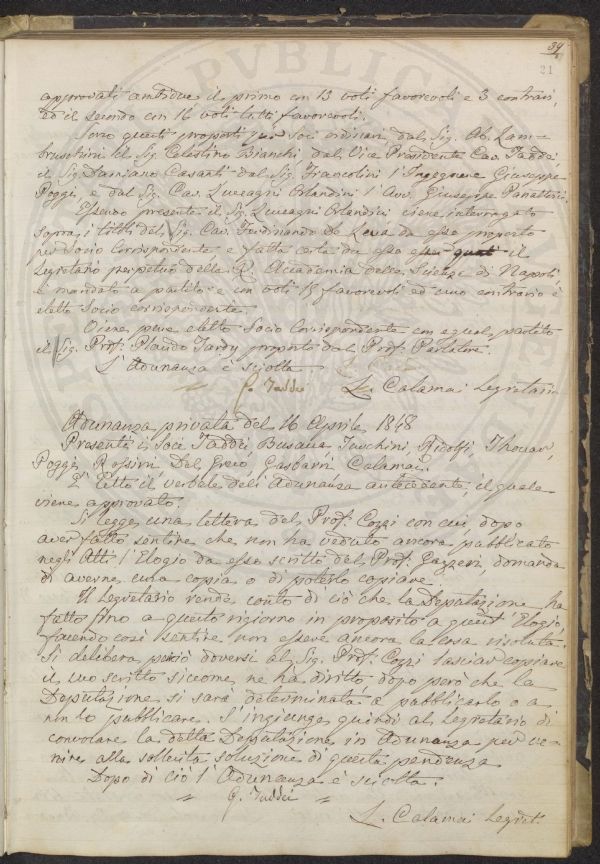 39
21
approvati ambidue il primo con 13 voti favorevoli e 3 contrari,
ed il secondo con 16 voti tutti favorevoli.
Sono quindi proposti per Soci ordinari dal Sig. Ab. Lam-
bruschini il Sig. Celestino Bianchi, dal Vice Presidente Cav. Taddei
il Sig. Damiano Casanti dal Sig. Francolini l'Ingegnere Giuseppe
Poggi, e dal Sig. Cav. Zuccagni Orlandini l'Avv. Giuseppe Panattoni.
Essendo presente il Sig. Zuccagni Orlandini viene interrogato
sopra i titoli del Sig. Cav. Ferdinando De Luca da esso proposto
per Socio Corrispondente e fatta certa da esso esser il
Segretario perpetuo della R. Accademia delle Scienze di Napoli,
è mandato a partito e con voti 15 favorevoli ed uno contrario è
eletto Socio corrispondente.
Viene pure eletto Socio Corrispondente con egual partito
il Sig. Prof. Placido Tardy proposto dal Prof. Parlatore.
L'Adunanza è sciolta
G. Taddei L. Calamai Segretario
Adunanza privata del 16 Aprile 1848
Presenti i Soci Taddei, Busacca, Tuschini, Ridolfi, Thouar,
Poggi, Rossini Del Greco, Gasbarri, Calamai.
È letto il verbale dell'Adunanza antecedente, il quale
viene approvato.
Si legge una lettera del Prof. Cozzi con cui dopo
aver fatto sentire che non ha veduto ancora pubblicato
negli Atti l'Elogio da esso scritto del Prof. Gazzeri, domanda
di averne una copia o di poterlo copiare.
Il Segretario rende conto di ciò che la Deputazione ha
fatto fino a questo giorno in proposito a quest'Elogio,
facendo così sentire non essere ancora la cosa risoluta.
Si delibera perciò doversi al Sig. Prof. Cozzi lasciar copiare
il suo scritto siccome ne ha diritto dopo però che la
Deputazione si sarà determinata a pubblicarlo o a
non lo pubblicare. S'ingiunge quindi al Segretario di
convocare la detta Deputazione in Adunanza per ve-
nire alla sollecita soluzione di questa pendenza
Dopo di ciò l'Adunanza è sciolta.
G. Taddei
L. Calamai Segret.